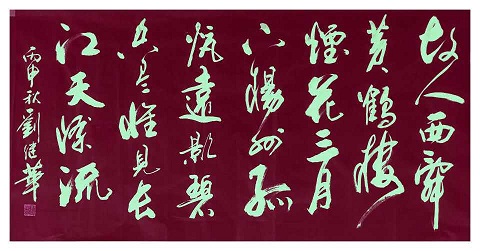 故人西辭
黄鶴樓
煙花三月
下揚州孤
帆遠影碧
空尽惟見长
江天際流
丙申秋劉華